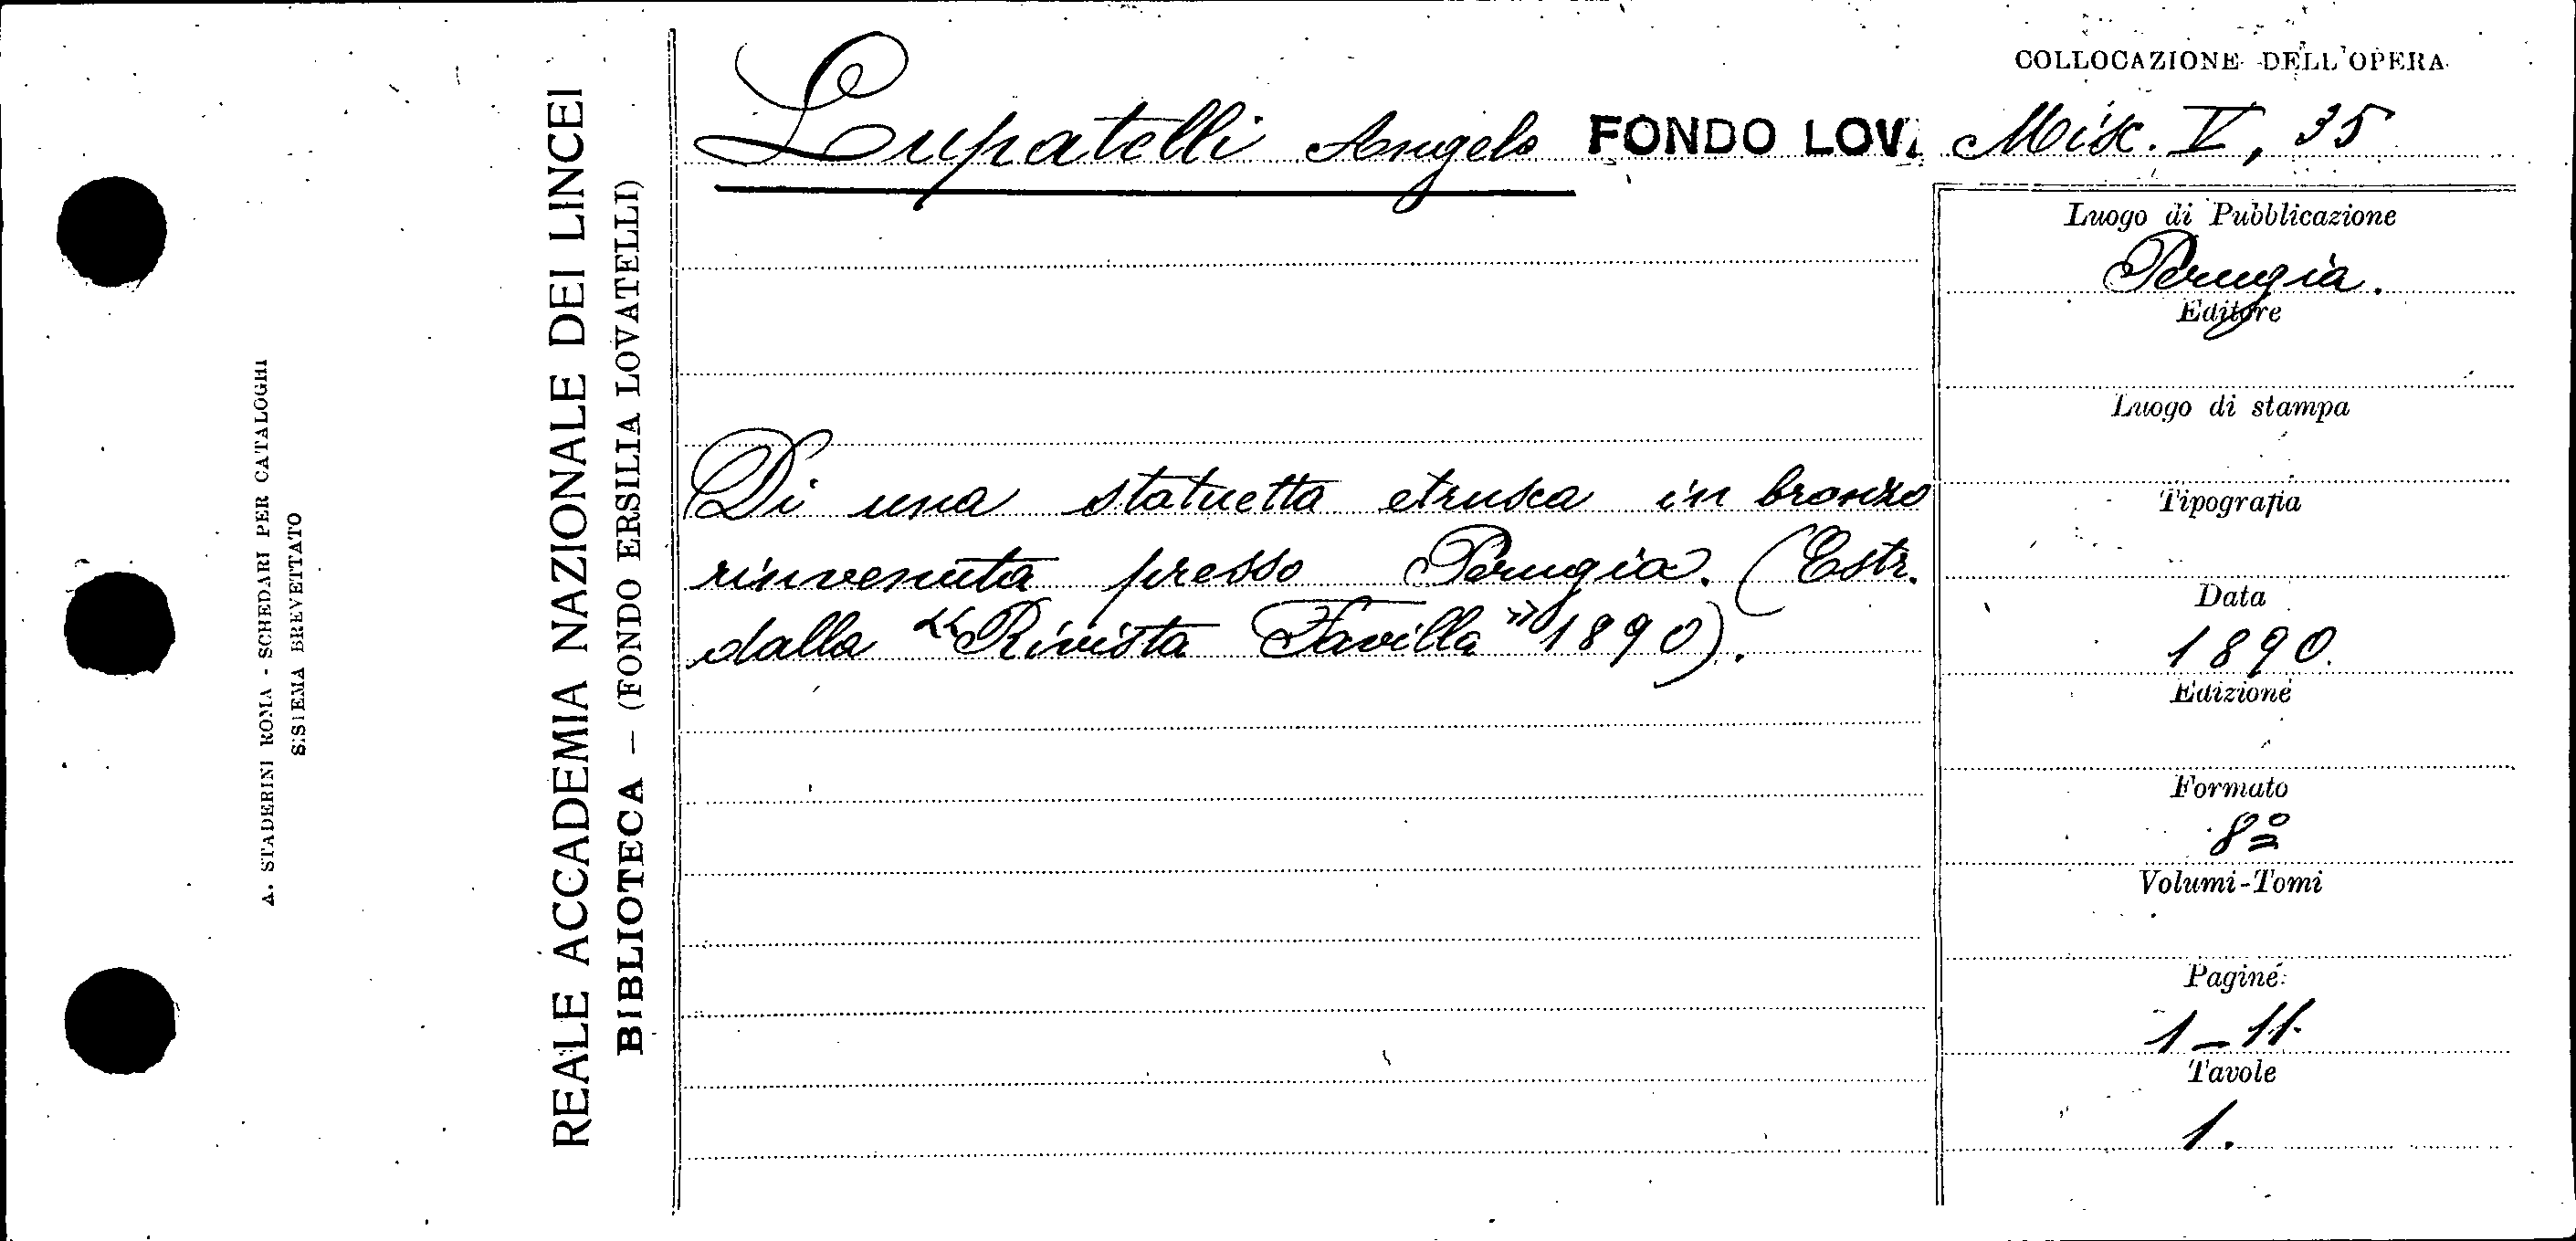 A. STADERINI ROMA - SCHEDARI PER CATALOGHI
SISTEMA BREVETTATO
REALE ACCADEMIA NAZIONALE DEI LINCEI
BIBLIOTECA - (FONDO ERSILIA LOVATELLI)
Lupatelli Angelo FONDO LOV.
Di una statuetta etrusca in bronzo
rinvenuta presso Perugia. (Estr.
dalla "Rivista Favilla" 1890).
COLLOCAZIONE DELL'OPERA
Misc. V, 35
Luogo di Pubblicazione
Perugia.
Editore
Luogo di stampa
Tipografia
Data
1890.
Edizione
Formato
8º
Volumi-Tomi
Pagine
1-11.
Tavole
1.